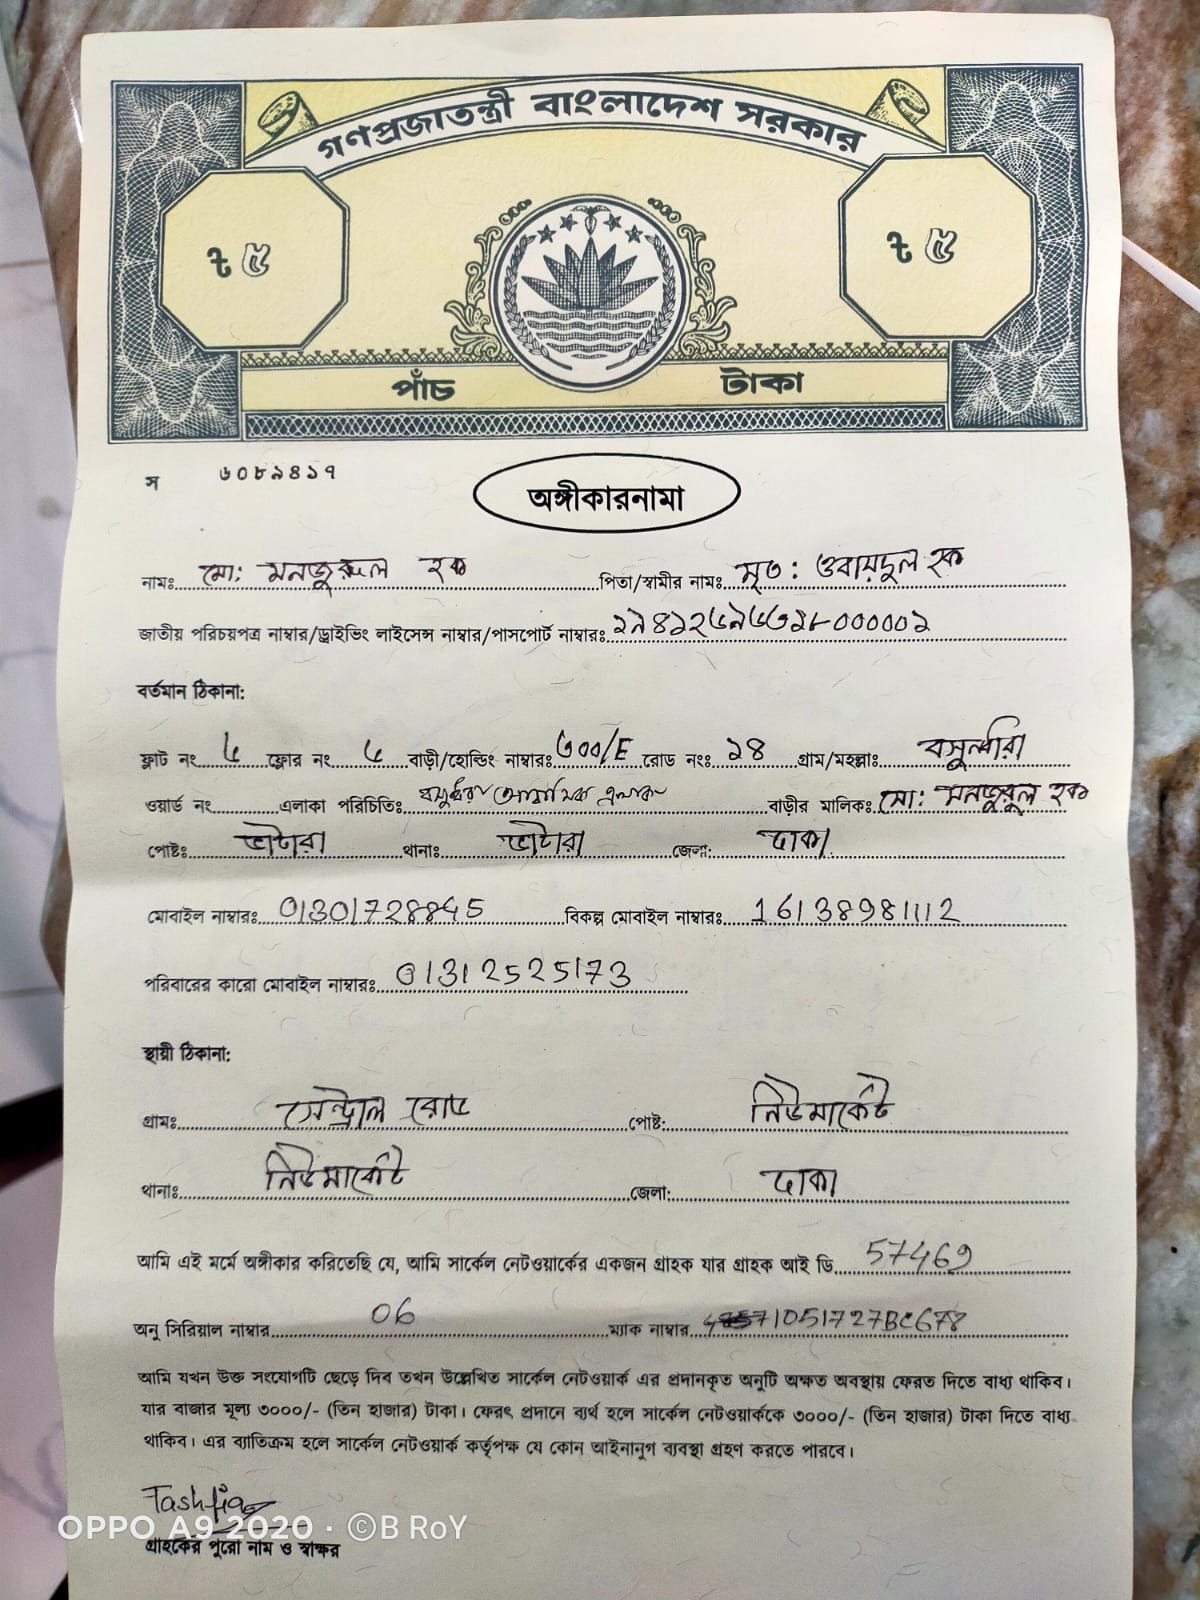 গণপ্রজাতন্ত্রী বাংলাদেশ সরকার
৳ ৫ ৳ ৫
পাঁচ টাকা
স ৬০৮৯৪১৭
অঙ্গীকারনামা
নামঃ মো: মনজুরুল হক পিতা/স্বামীর নামঃ মৃত: ওবায়দুল হক
জাতীয় পরিচয়পত্র নাম্বার/ড্রাইভিং লাইসেন্স নাম্বার/পাসপোর্ট নাম্বারঃ
বর্তমান ঠিকানা:
ফ্লাট নং ৬ ফ্লোর নং ৬ বাড়ী/হোল্ডিং নাম্বারঃ ৩০০/E রোড নংঃ ১৪ গ্রাম/মহল্লাঃ বসুন্ধরা
ওয়ার্ড নং এলাকা পরিচিতিঃ বসুন্ধরা আবাসিক এলাকা বাড়ীর মালিকঃ মো: মনজুরুল হক
পোষ্টঃ ভাটারা থানাঃ ভাটারা জেলা: ঢাকা
মোবাইল নাম্বারঃ 01301728845 বিকল্প মোবাইল নাম্বারঃ 16138981112
পরিবারের কারো মোবাইল নাম্বারঃ 01312525173
স্থায়ী ঠিকানা:
গ্রামঃ সেন্ট্রাল রোড পোষ্ট: নিউমার্কেট
থানাঃ নিউমার্কেট জেলা: ঢাকা
আমি এই মর্মে অঙ্গীকার করিতেছি যে, আমি সার্কেল নেটওয়ার্কের একজন গ্রাহক যার গ্রাহক আই ডি 57469
অনু সিরিয়াল নাম্বার 06 ম্যাক নাম্বার
আমি যখন উক্ত সংযোগটি ছেড়ে দিব তখন উল্লেখিত সার্কেল নেটওয়ার্ক এর প্রদানকৃত অনুটি অক্ষত অবস্থায় ফেরত দিতে বাধ্য থাকিব।
যার বাজার মূল্য ৩০০০/- (তিন হাজার) টাকা। ফেরৎ প্রদানে ব্যর্থ হলে সার্কেল নেটওয়ার্ককে ৩০০০/- (তিন হাজার) টাকা দিতে বাধ্য
থাকিব। এর ব্যাতিক্রম হলে সার্কেল নেটওয়ার্ক কর্তৃপক্ষ যে কোন আইনানুগ ব্যবস্থা গ্রহণ করতে পারবে।
Tashfia
OPPO A9 2020 · ©B RoY
গ্রাহকের পুরো নাম ও স্বাক্ষর